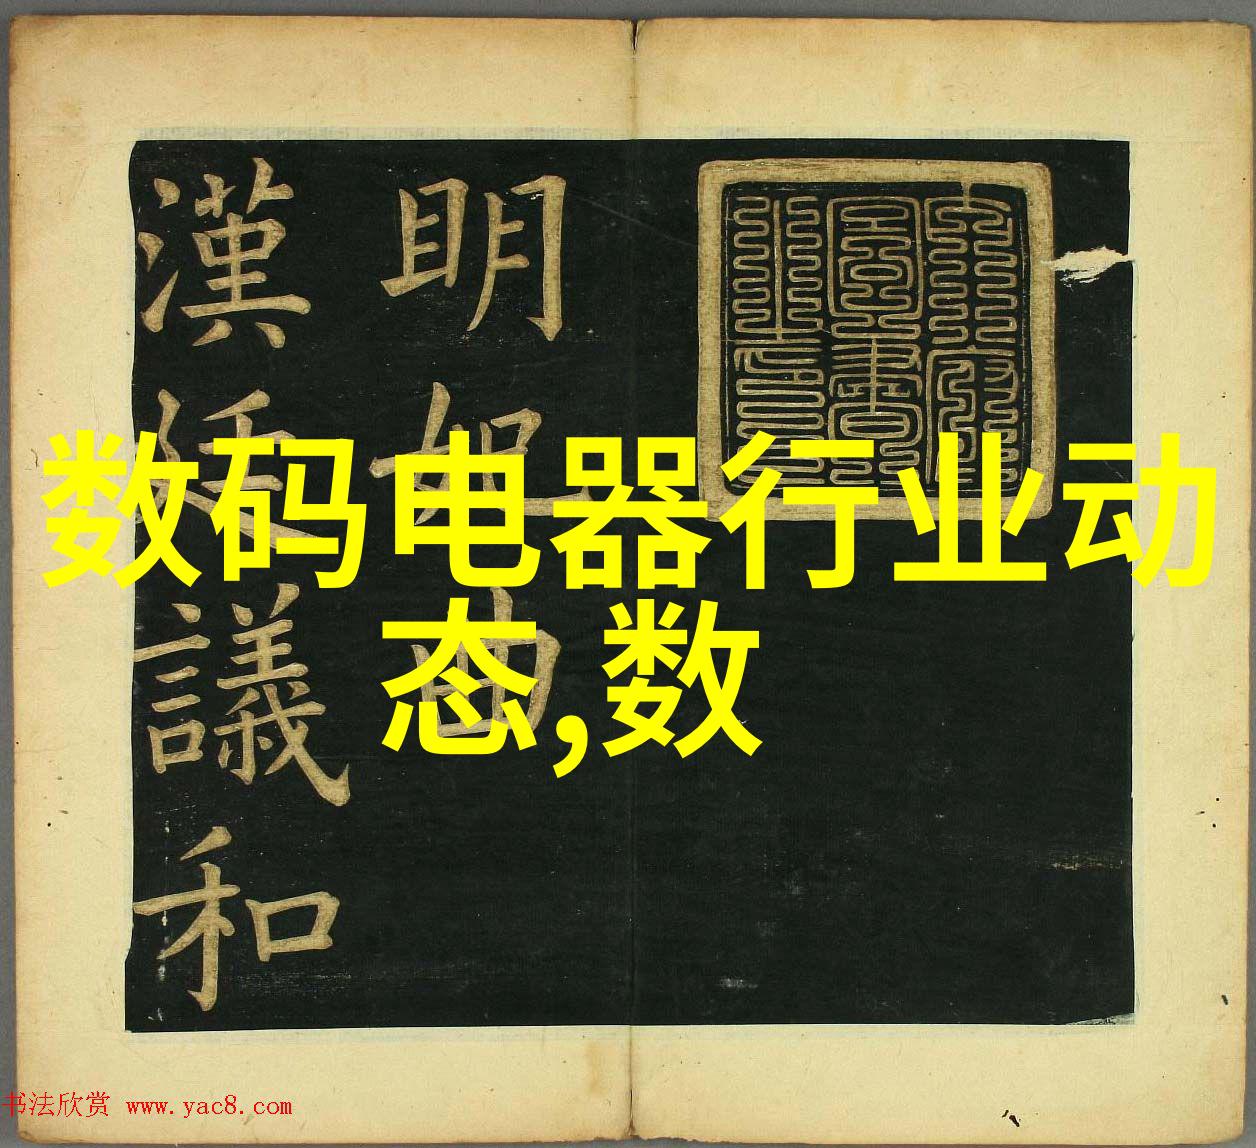 明妃曲
漢廷議和
数码电器行业动
态,数
书法欣赏 www.yac8.com